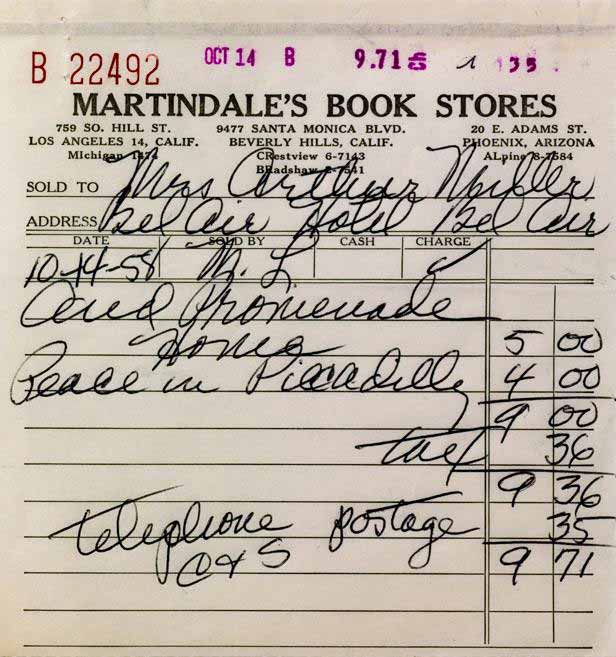 B 22492 OCT 14 B 9.71
MARTINDALE'S BOOK STORES
759 SO. HILL ST. 9477 SANTA MONICA BLVD. 20 E. ADAMS ST.
LOS ANGELES 14, CALIF. BEVERLY HILLS, CALIF. PHOENIX, ARIZONA
Michigan 1474 CRestview 6-7143 ALpine 8-7584
BRadshaw 2-7541
SOLD TO Mrs Arthur Miller
ADDRESS Bel Air Hotel Bel Air
DATE SOLD BY CASH CHARGE
10-14-58 M. L ✓
And Promenade
Home 5 00
Peace in Piccadilly 4 00
9 00
tax 36
9 36
telephone postage 35
9 71